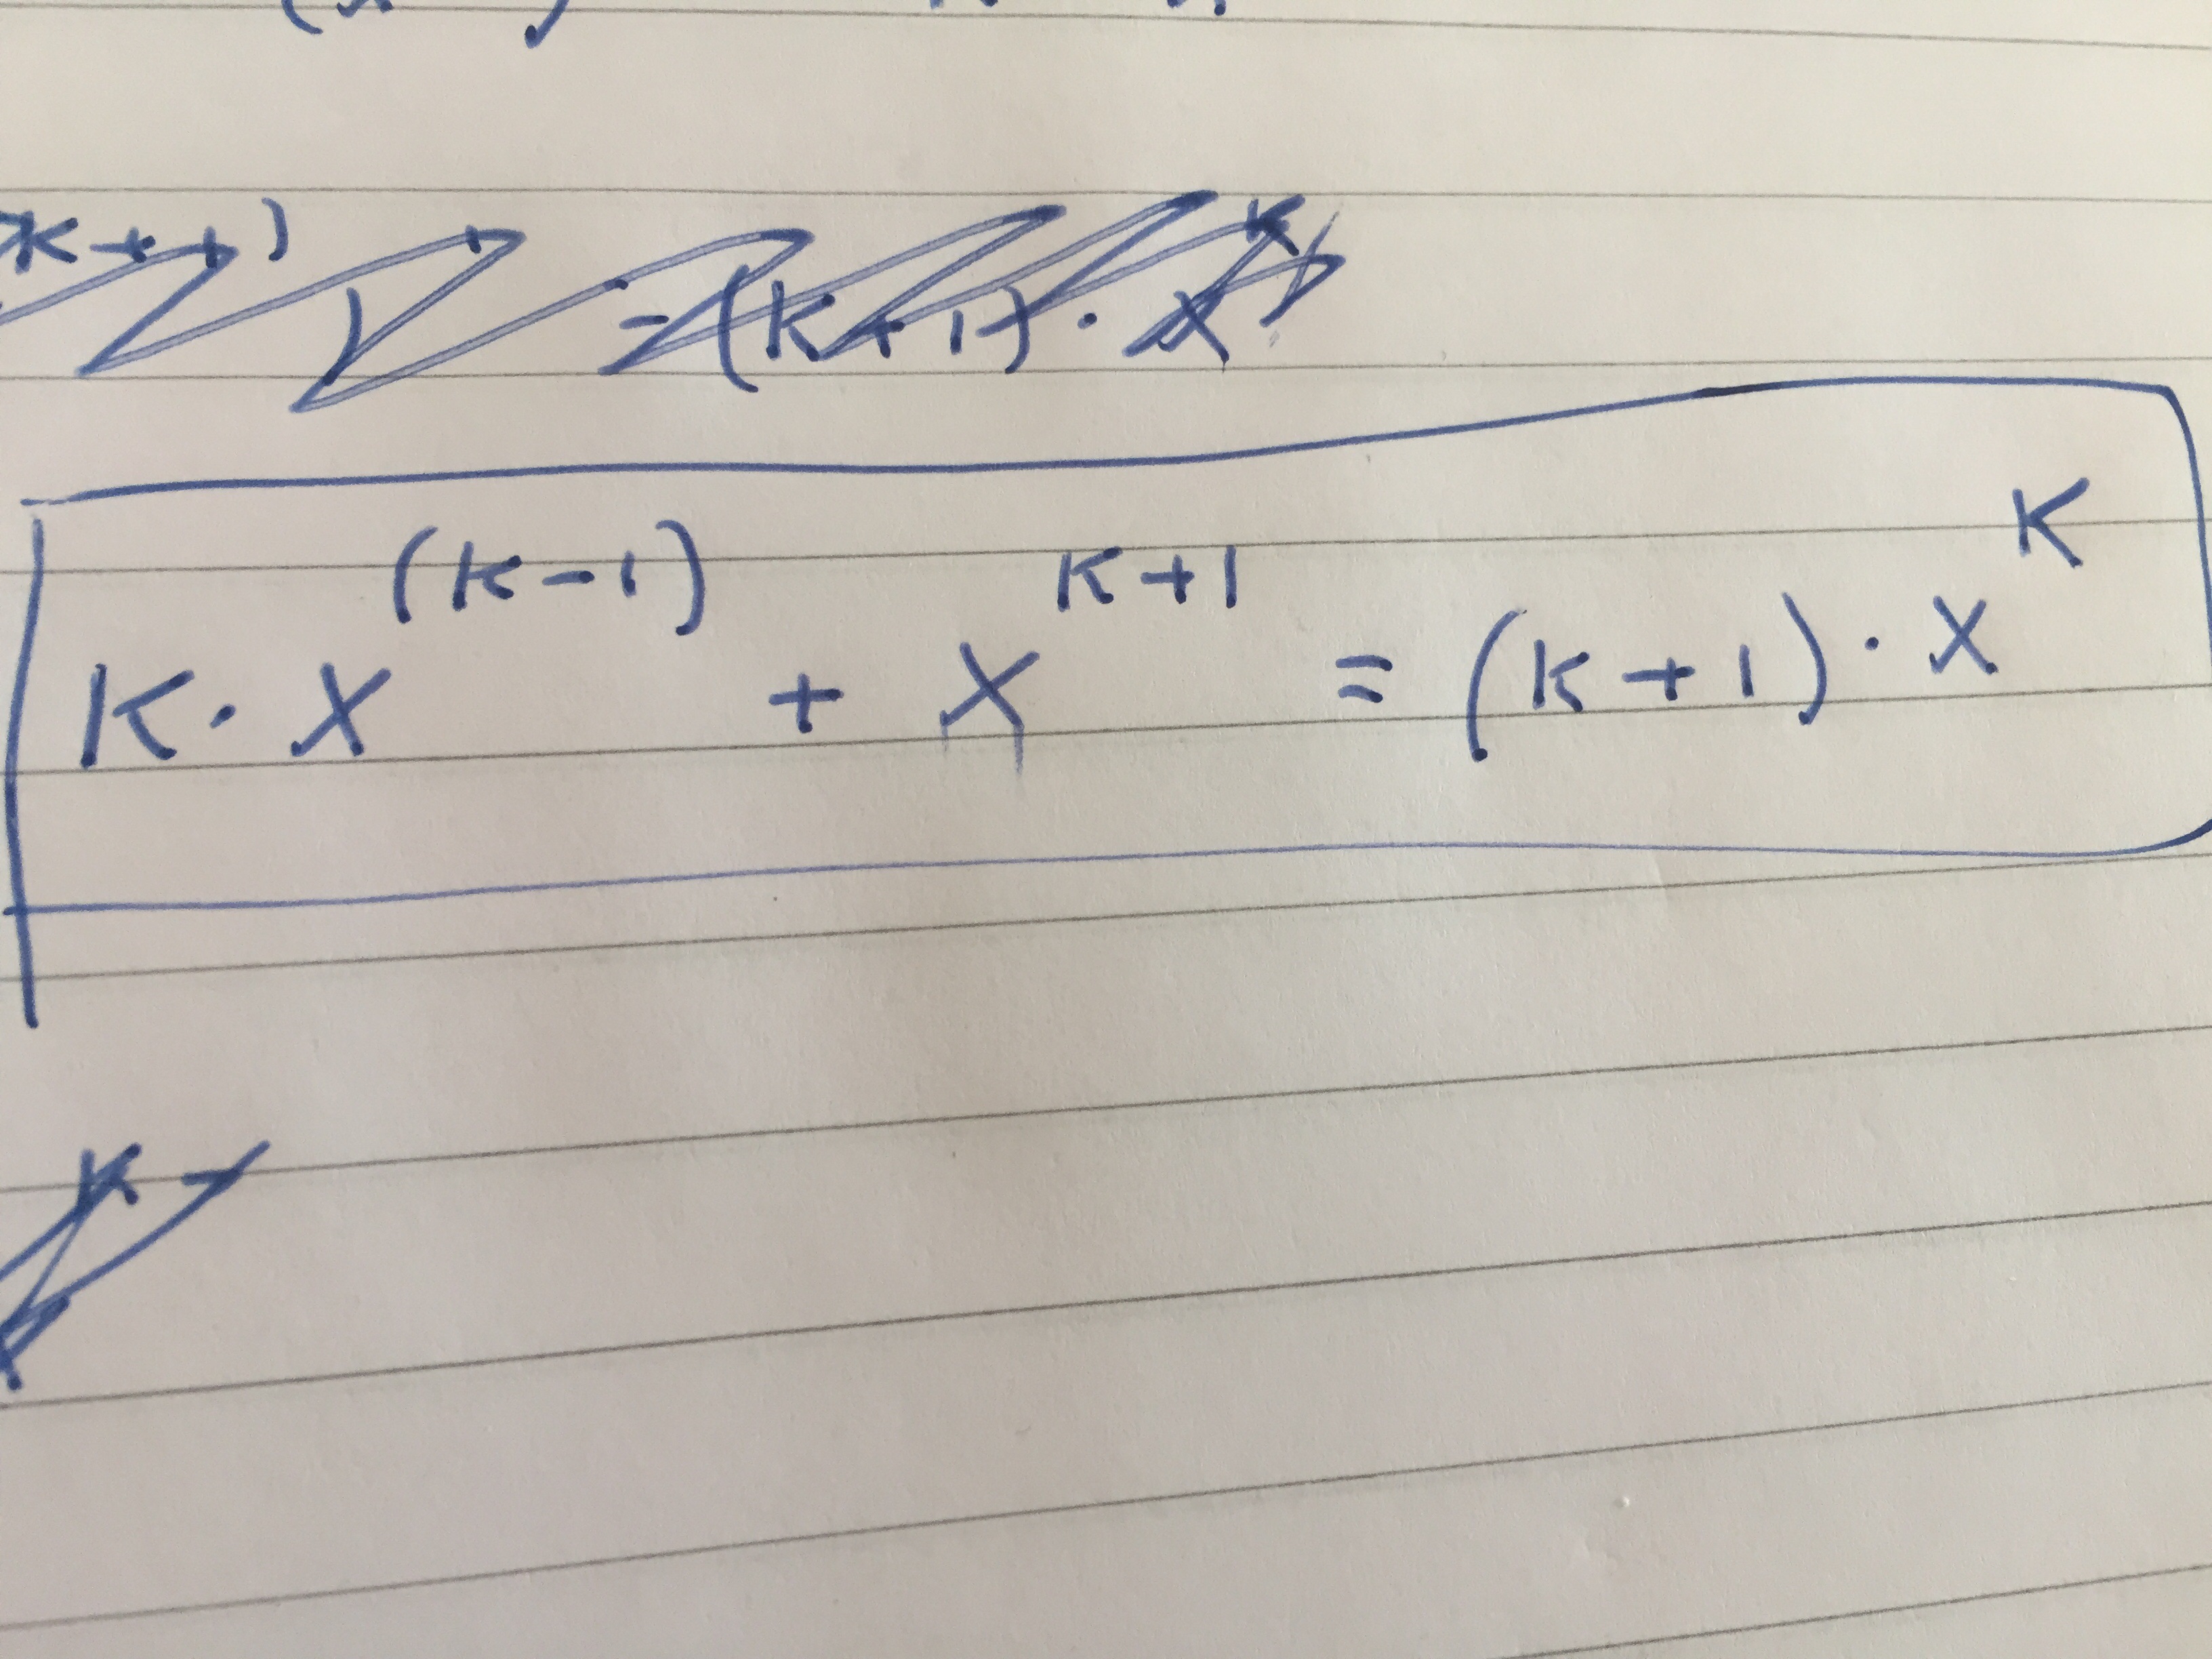 K+1) ) = (K+1) · X^K
K · X^(K-1) + X^K+1 = (K+1) · X^K
K -